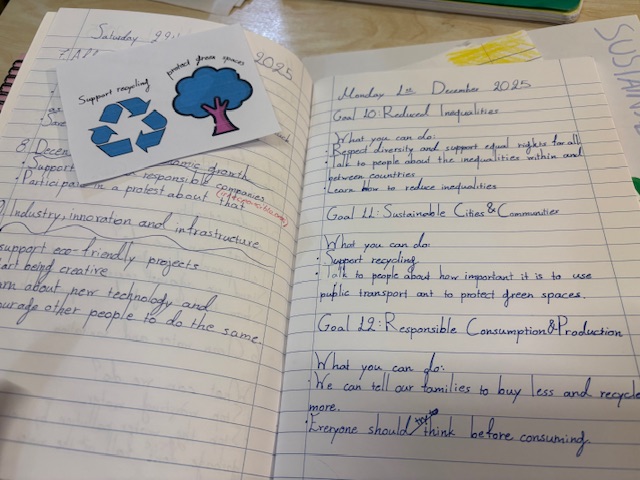 Saturday 29
2025
Support recycling
protect green spaces
8 Decen
omic growth
Support
responsible companies
Participate in a protest about that
Industry, innovation and infrastructure
support eco-friendly projects
art being creative
rn about new technology and
ourage other people to do the same.
SUSTAIN
Monday 1st December 2025
Goal 10: Reduced Inequalities
What you can do:
· Respect diversity and support equal rights for all
· Talk to people about the inequalities within and
between countries
· Learn how to reduce inequalities
Goal 11: Sustainable Cities & Communities
What you can do:
· Support recycling
· Talk to people about how important it is to use
public transport ant to protect green spaces.
Goal 12: Responsible Consumption & Production
What you can do:
· We can tell our families to buy less and recycle
more.
· Everyone should try to think before consuming.